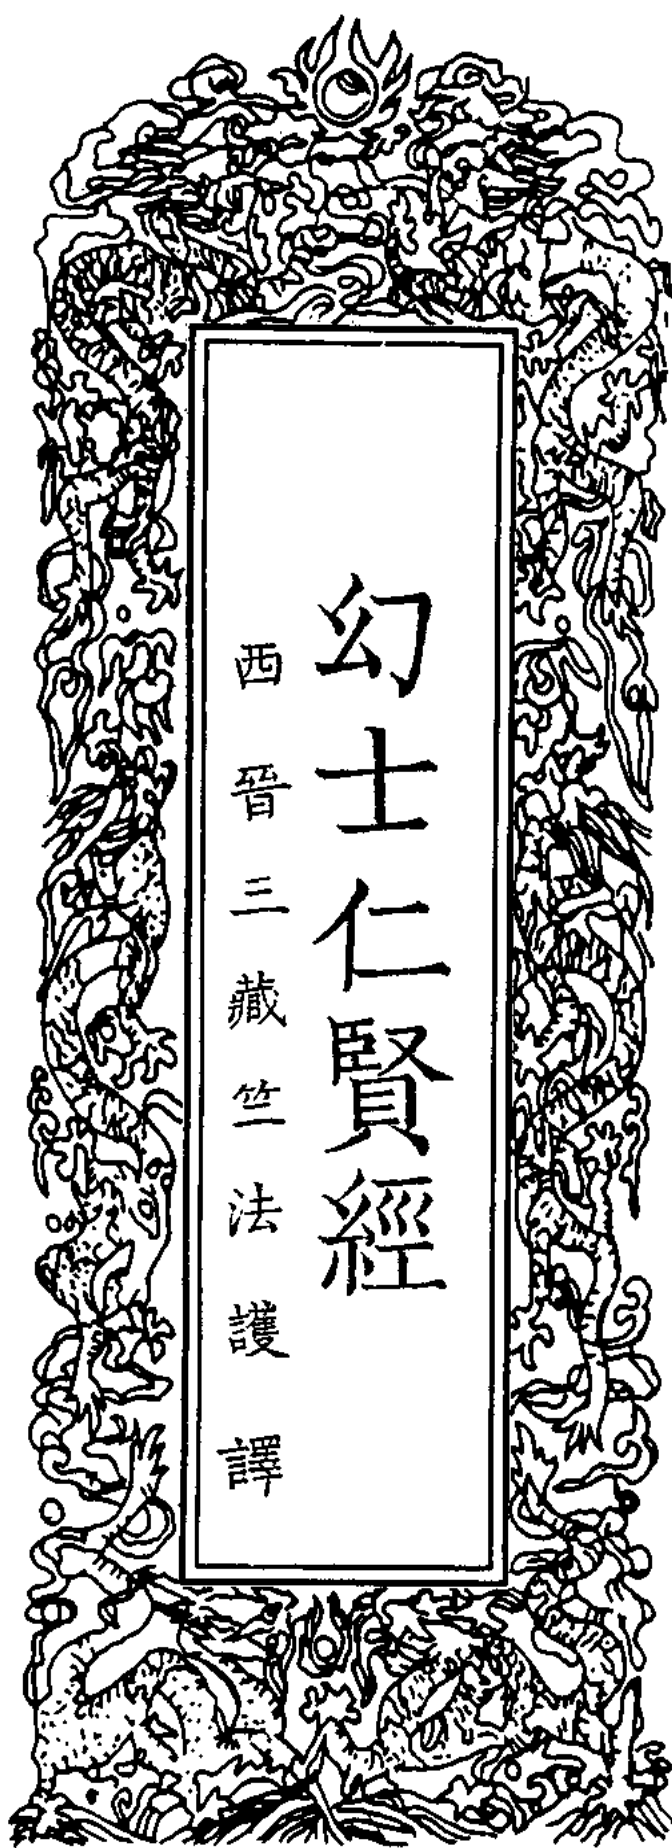 幻士仁賢經
西晉三藏竺法護譯